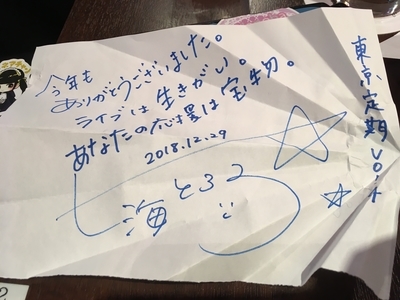 東京定期 vol.1
今年も
ありがとうございました。
ライブは生きがい。
あなたの応援は宝物。
2018.12.29
海